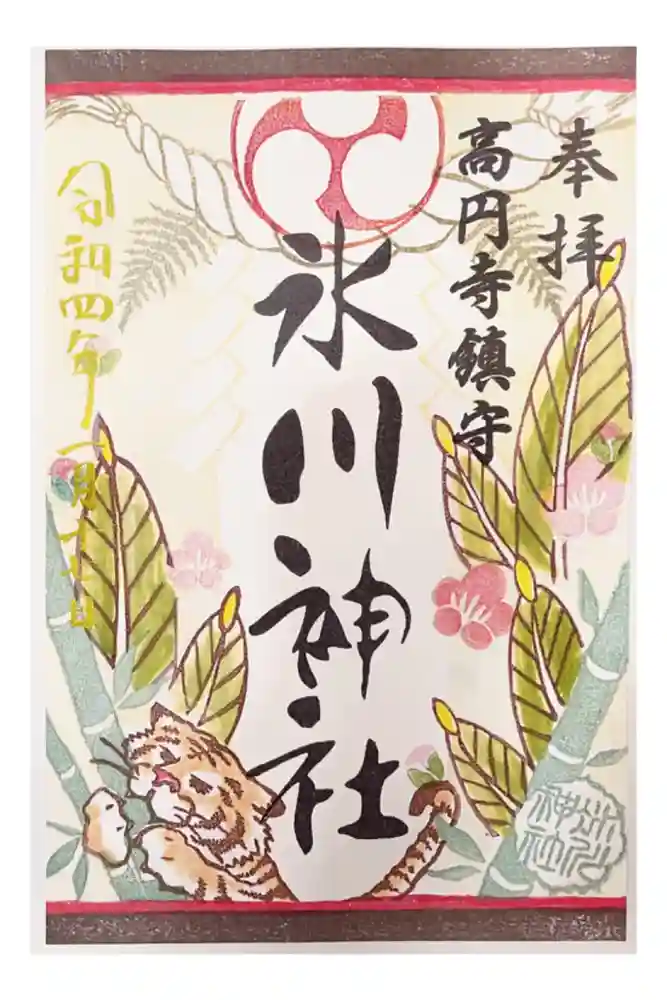 奉拝
高円寺鎮守
氷川神社
令和四年一月十七日
氷川神社